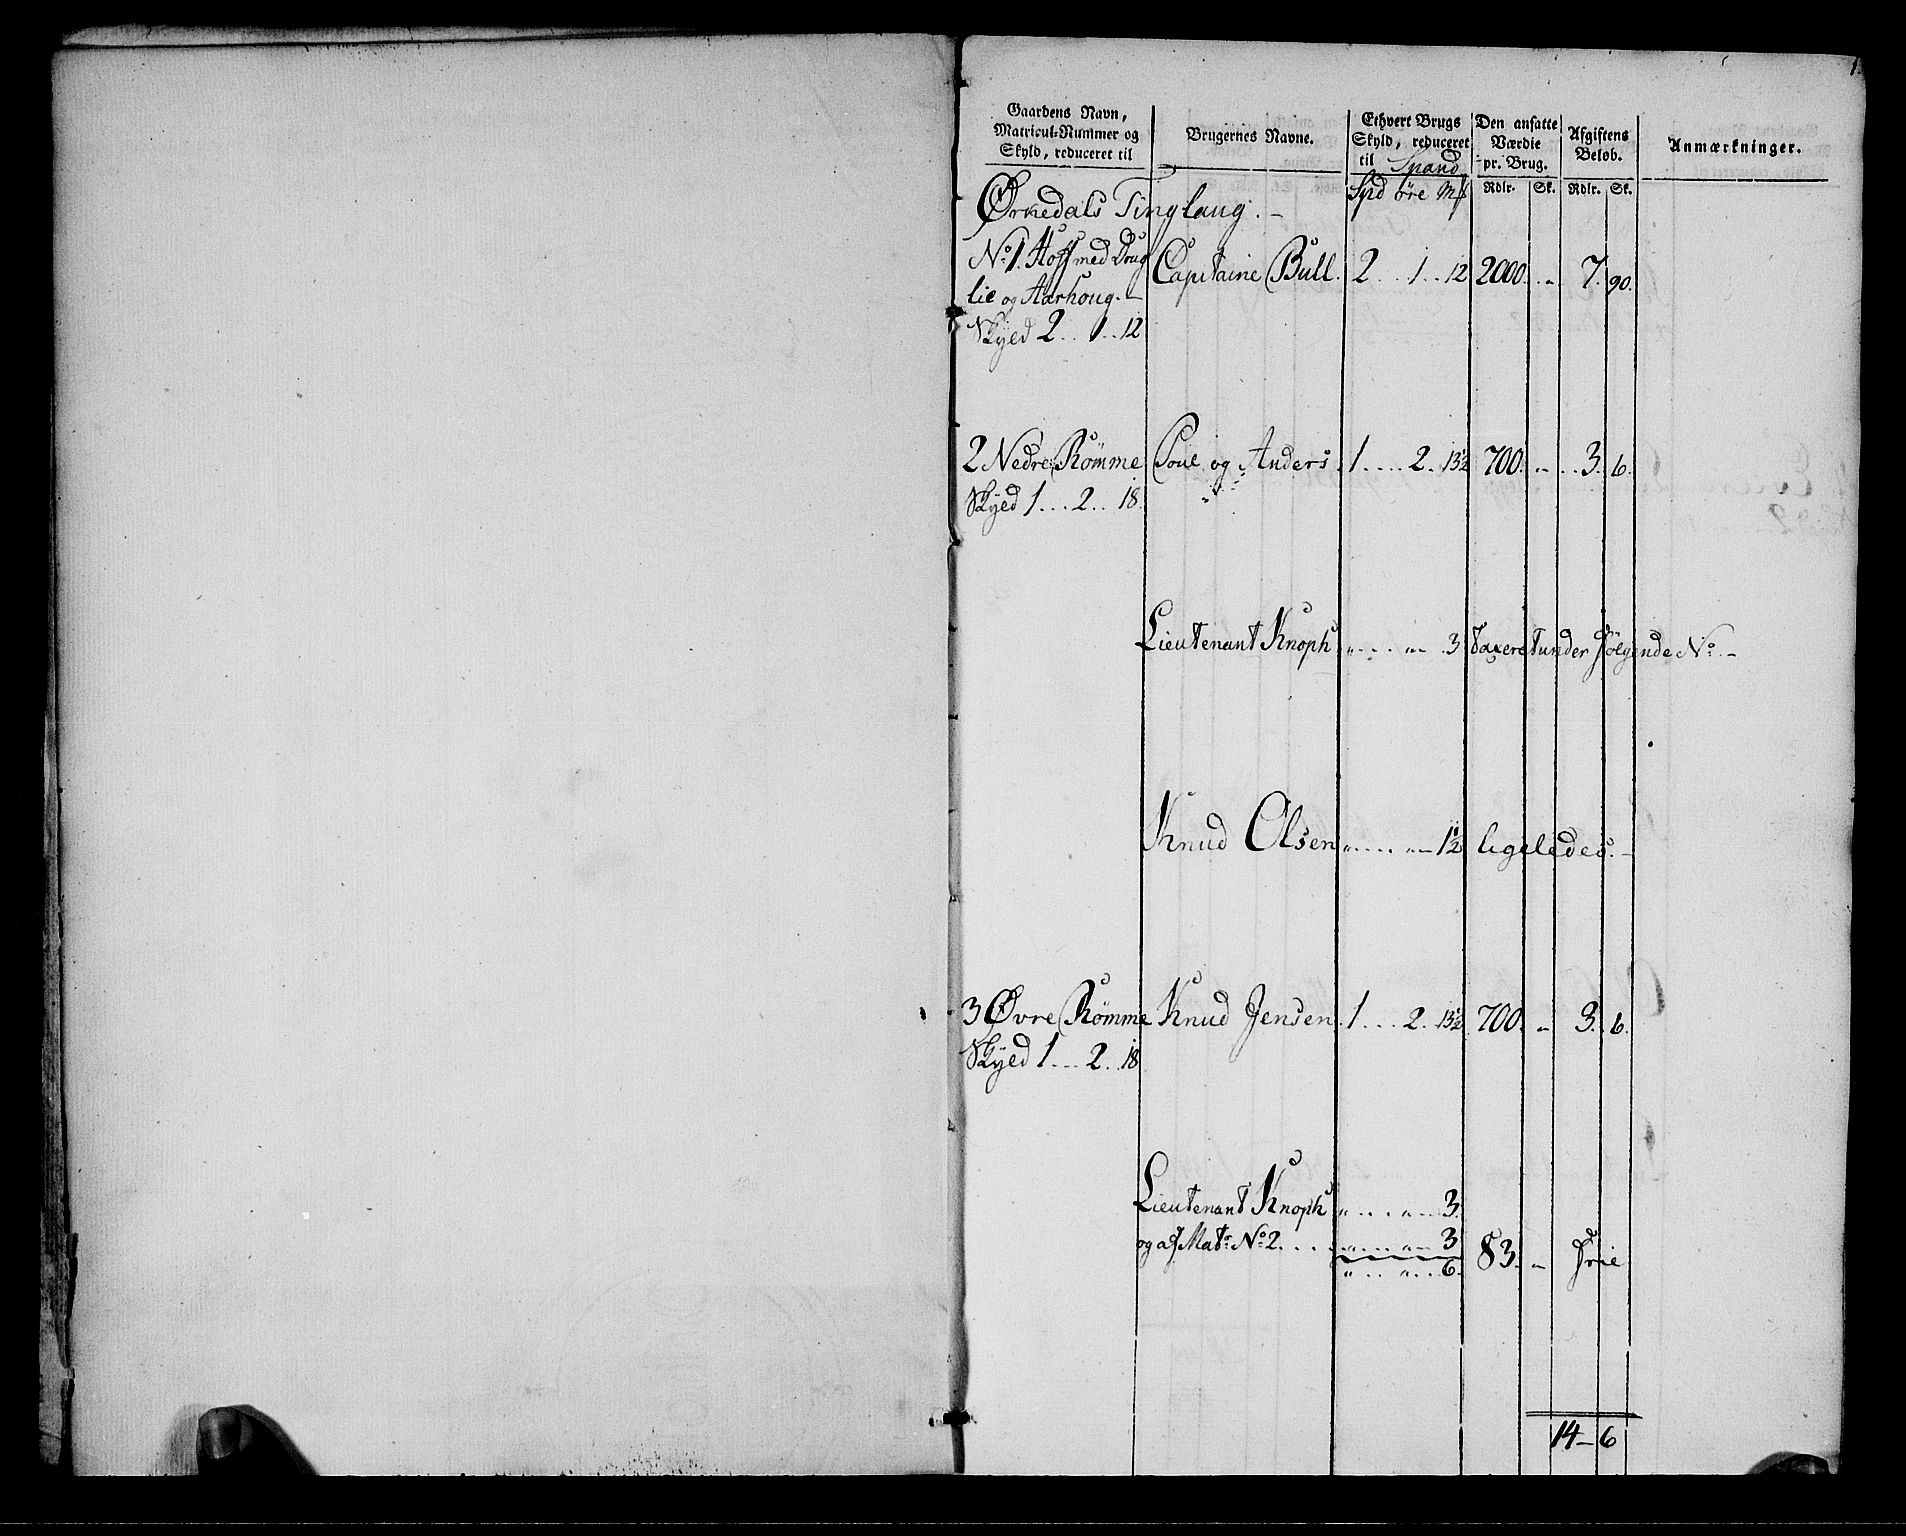 1.
Gaardens Navn, Matricul-Nummer og Skyld, reduceret til
Brugernes Navne.
Ethvert Brugs Skyld, reduceret til Spand
Den ansatte Værdie pr. Brug.
Afgiftens Beløb.
Anmærkninger.
Spd øre Mk
Rdlr. Sk. Rdlr. Sk.
Ørkedals Tinglaug. -
No 1. Hoff med Doug Capitaine Bull. 2 . . 1 . . 12 2000. . „ 7. 90.
lie og Aarhoug. -
Skyld 2 . . 1 . . 12
2 Nedre Römme Poul og Anders 1 . . . . 2 . 13½ 700. „ . . 3. 6.
Skyld 1 . . . 2 . . 18.
Lieutenant Knoph „ . . . „ - 3 Taxeret under følgende No. -
Knud Olsen „ . . . . „ - 1½ ligeledes. -
3 Øvre Römme Knud Jensen 1 . . . 2 . 13½ 700. „ 3. 6.
Skyld 1 . . . 2 . . 18
Lieutenant Knoph „ . . . „ - 3.
og af Matr No 2 . . . . „ . . . „ - 3
„ . . . „ . . 6. 83. „ frie
14 - 6